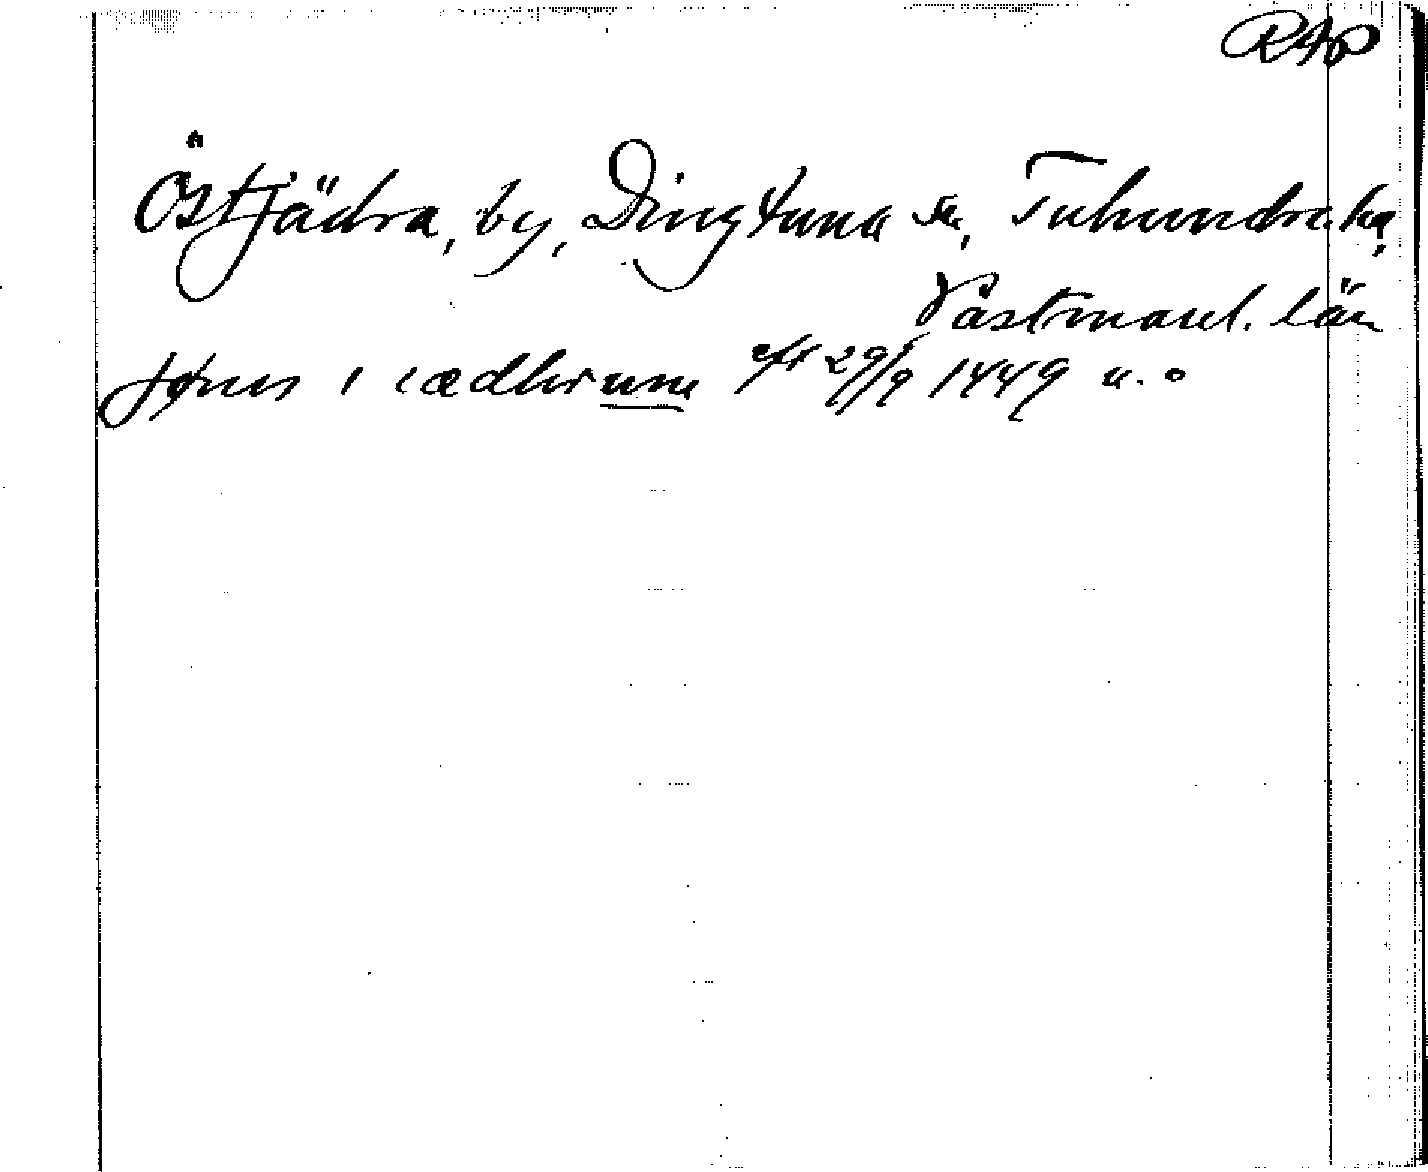 RAp
Östjädra, by, Dingtuna sn, Tuhundra hd,
Västmanl. län
jønis i iædhrum eft 29/9 1449 u. o